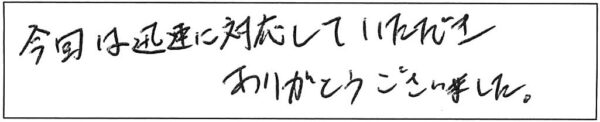 今回は迅速に対応していただき
ありがとうございました。